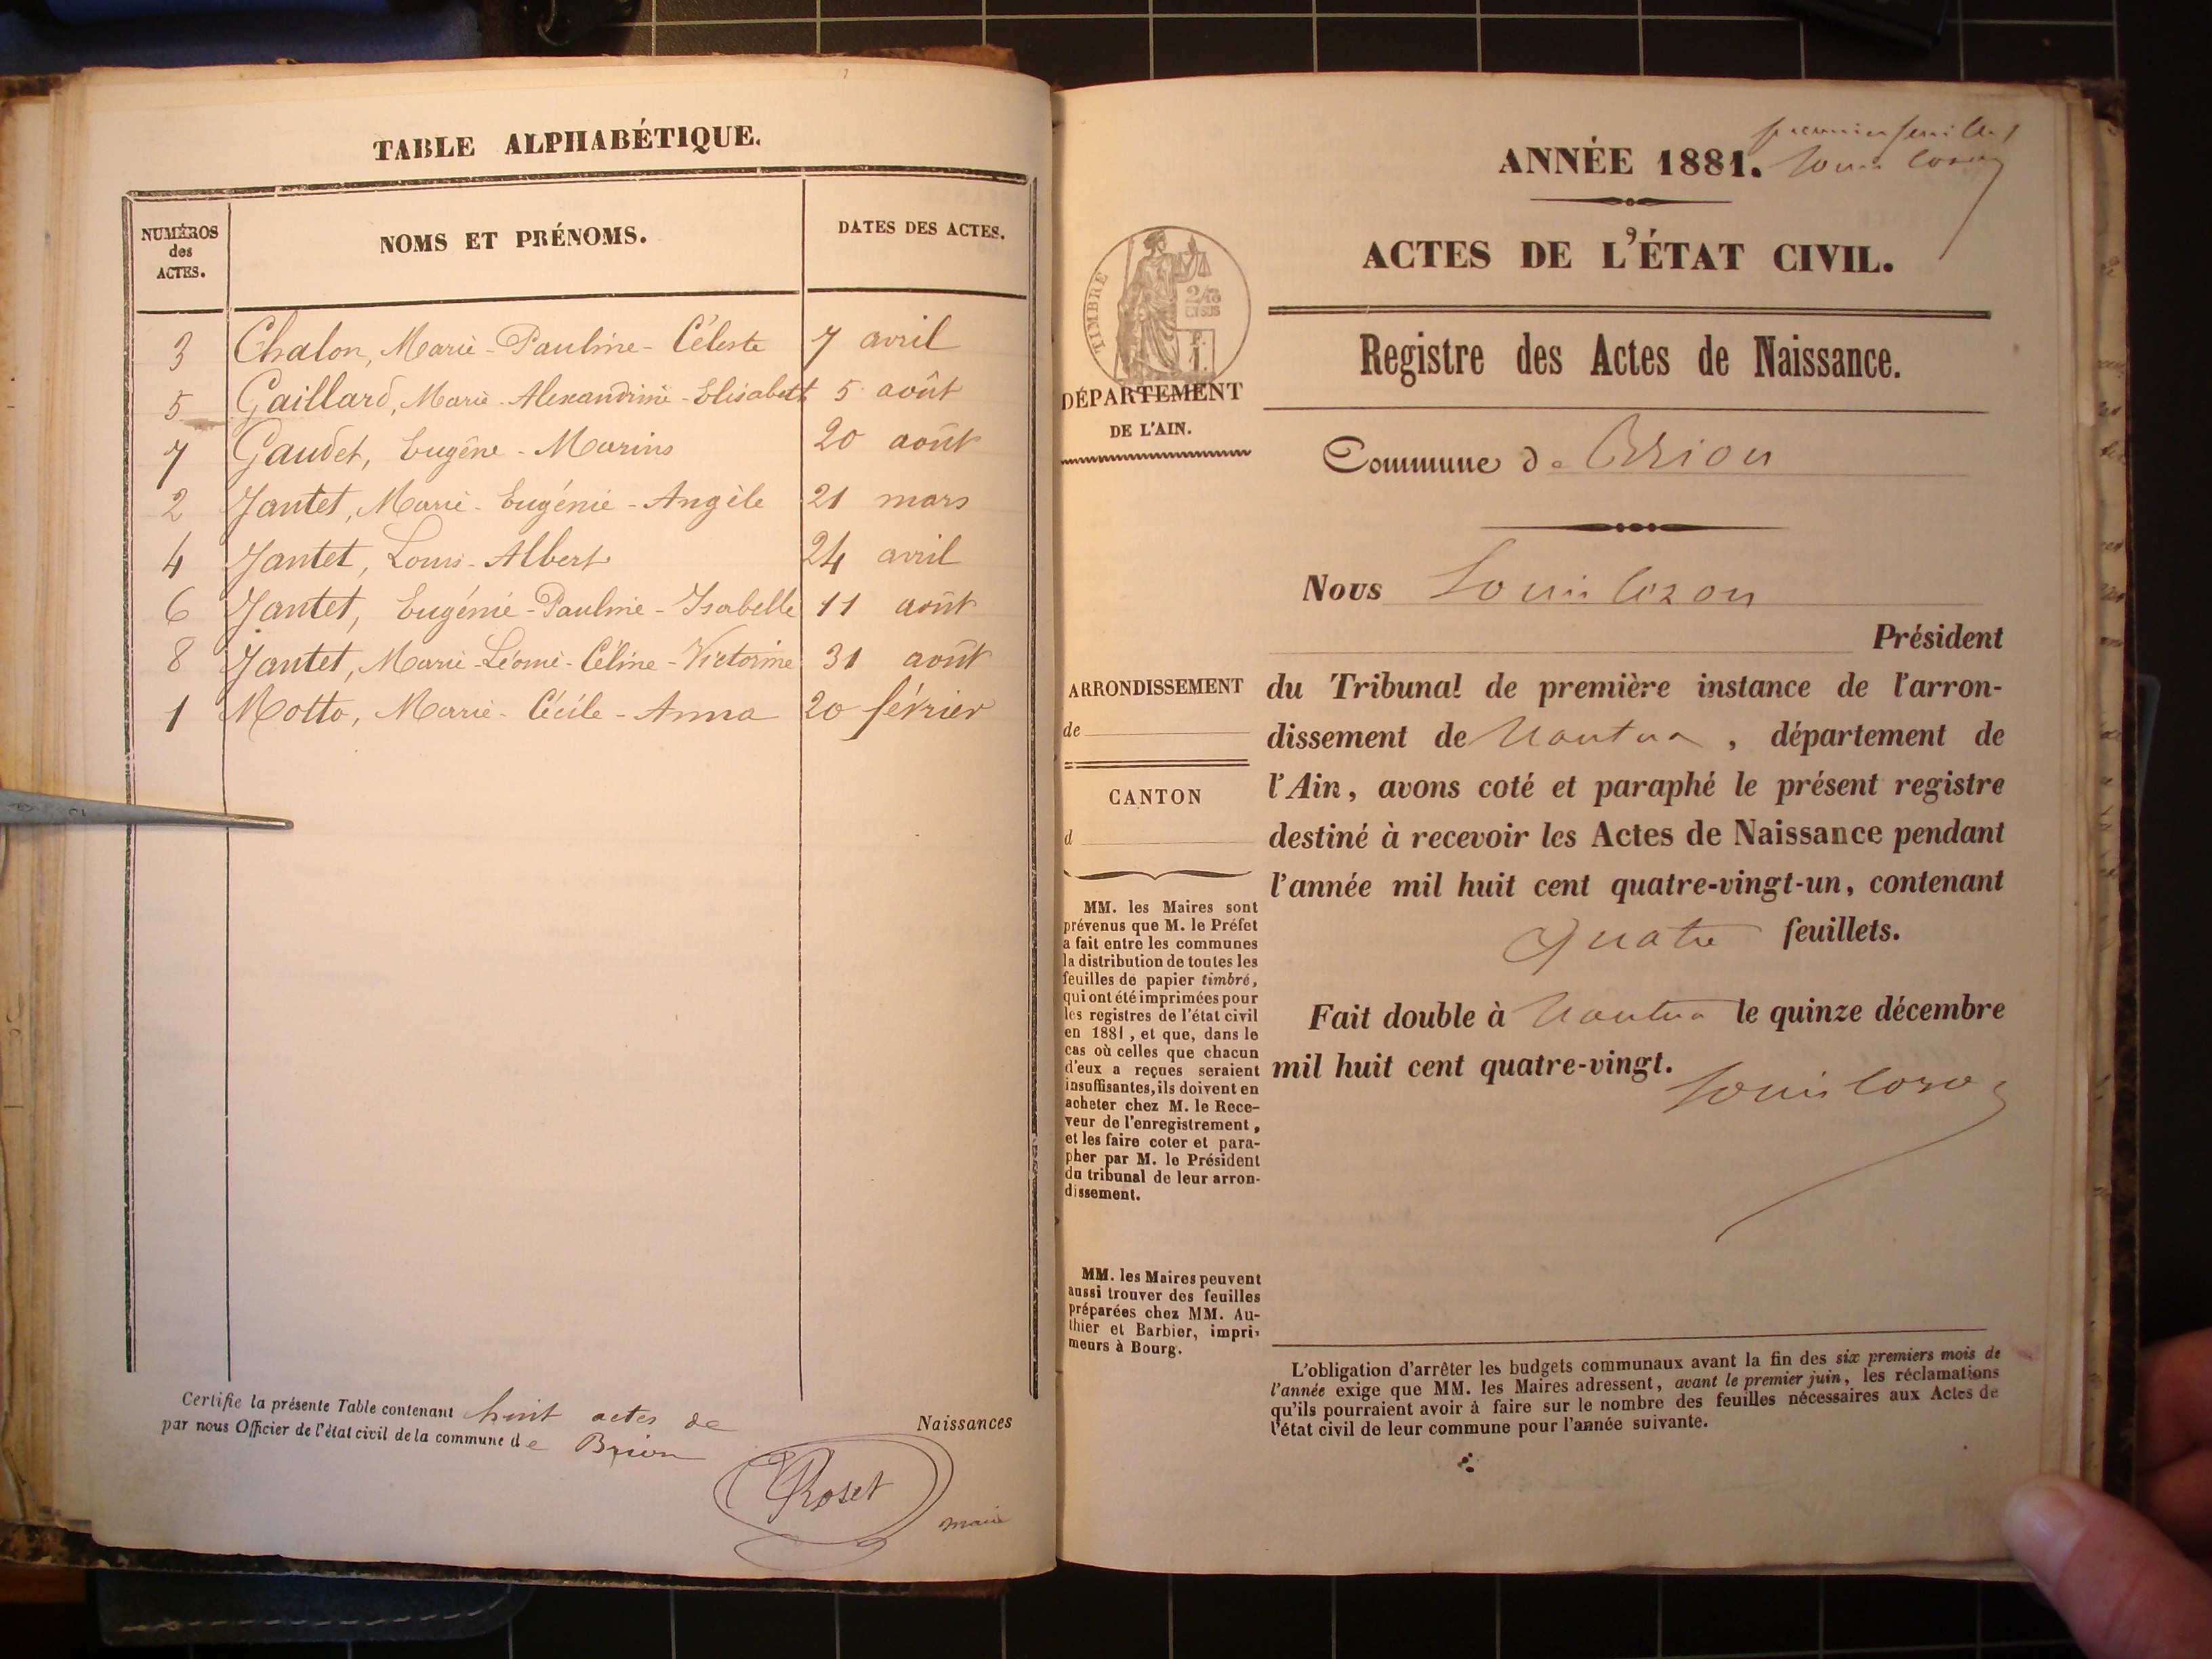 TABLE ALPHABÉTIQUE.
NUMÉROS des ACTES.
NOMS ET PRÉNOMS.
DATES DES ACTES.
3 Chalon, Marie-Pauline-Céleste 7 avril
5 Gaillard, Marie-Alexandrine-Elisabeth 5 août
7 Gaudet, Eugène-Marius 20 août
2 Jantet, Marie-Eugénie-Angèle 21 mars
4 Jantet, Louis-Albert 24 avril
6 Jantet, Eugénie-Pauline-Isabelle 11 août
8 Jantet, Marie-Léonie-Céline-Victorine 31 août
1 Motto, Marie-Cécile-Anna 20 février
Certifie la présente Table contenant huit actes de Naissances
par nous Officier de l'état civil de la commune de Brion
Roset
maire
premier feuillet
ANNÉE 1881. Louis
ACTES DE L'ÉTAT CIVIL.
TIMBRE
2/10
EN SUS
Registre des Actes de Naissance.
DÉPARTEMENT
DE L'AIN.
Commune de Brion
Nous Louis
Président
ARRONDISSEMENT
de
CANTON
d
du Tribunal de première instance de l'arron-
dissement de Nantua, département de
l'Ain, avons coté et paraphé le présent registre
destiné à recevoir les Actes de Naissance pendant
l'année mil huit cent quatre-vingt-un, contenant
quatre feuillets.
Fait double à Nantua le quinze décembre
mil huit cent quatre-vingt.
Louis
MM. les Maires sont
prévenus que M. le Préfet
a fait entre les communes
la distribution de toutes les
feuilles de papier timbré,
qui ont été imprimées pour
les registres de l'état civil
en 1881, et que, dans le
cas où celles que chacun
d'eux a reçues seraient
insuffisantes, ils doivent en
acheter chez M. le Rece-
veur de l'enregistrement,
et les faire coter et para-
pher par M. le Président
du tribunal de leur arron-
dissement.
MM. les Maires peuvent
aussi trouver des feuilles
préparées chez MM. Au-
thier et Barbier, impri-
meurs à Bourg.
L'obligation d'arrêter les budgets communaux avant la fin des six premiers mois de
l'année exige que MM. les Maires adressent, avant le premier juin, les réclamations
qu'ils pourraient avoir à faire sur le nombre des feuilles nécessaires aux Actes de
l'état civil de leur commune pour l'année suivante.